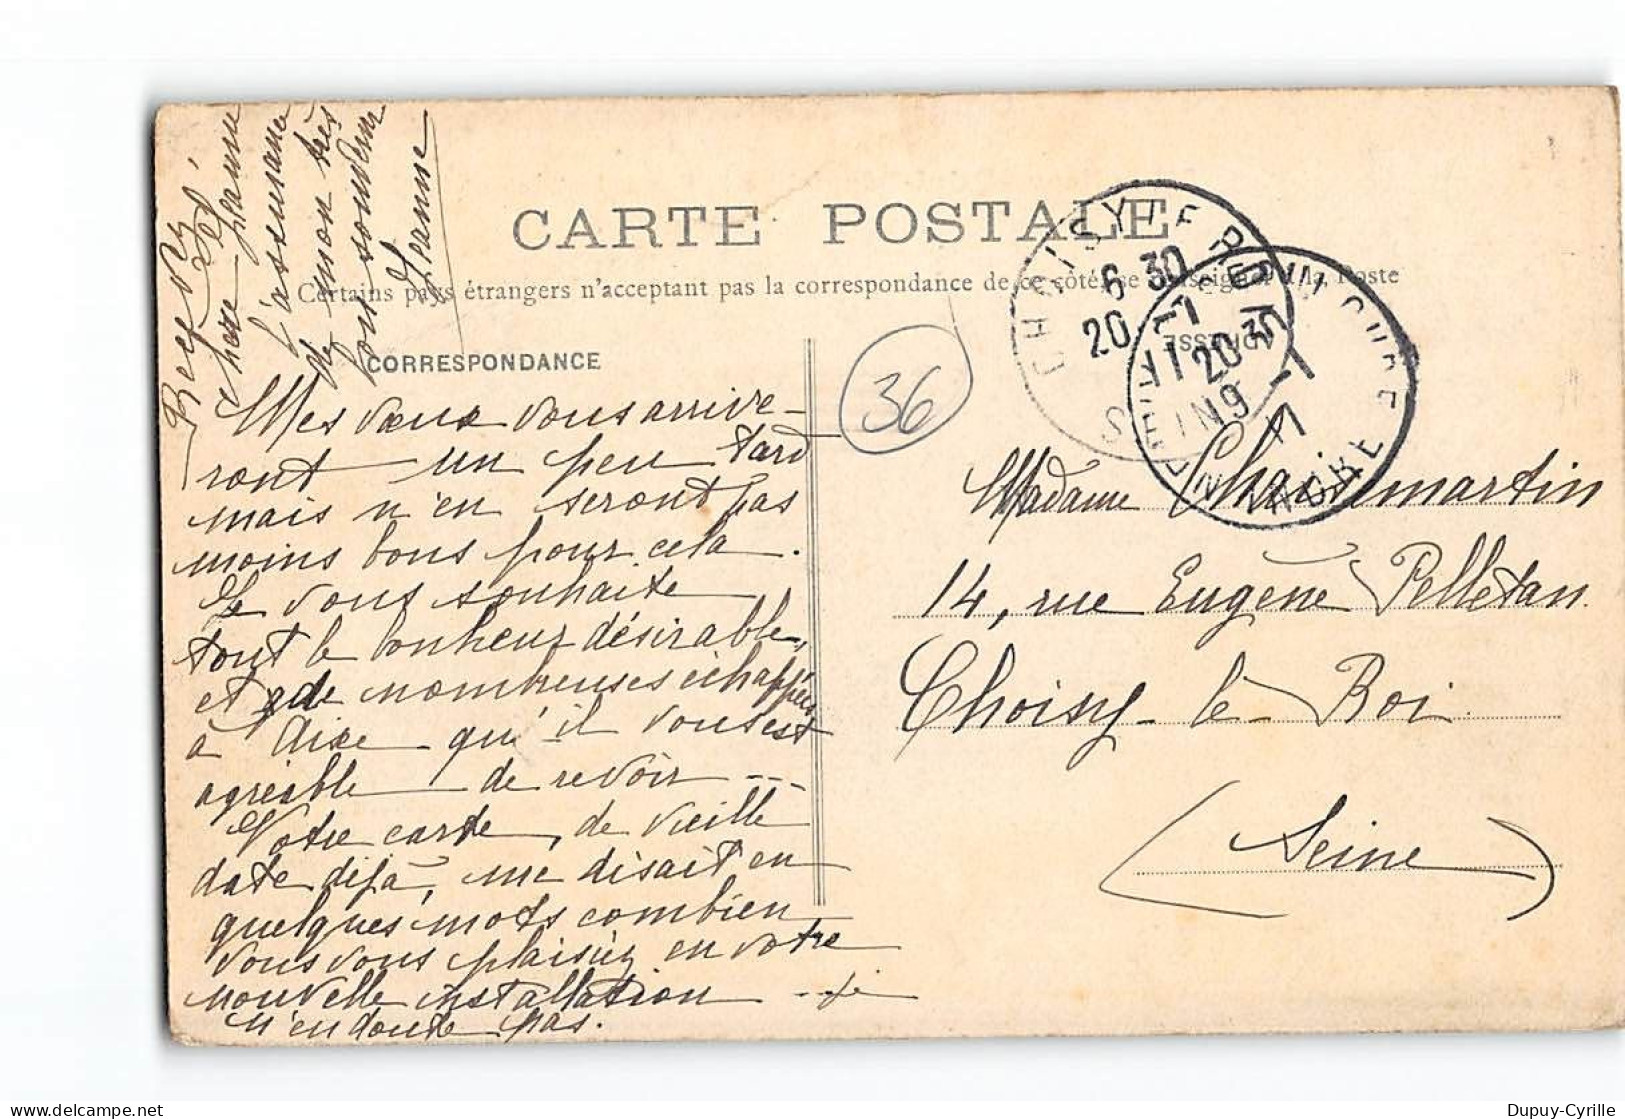 CARTE POSTALE
Certains pays étrangers n'acceptant pas la correspondance de ce côté, se renseigner à la Poste
CORRESPONDANCE
ADRESSE
36
Mes vœux vous arrive-
ront un peu tard
mais n'en seront pas
moins bons pour cela.
Je vous souhaite
tout le bonheur désirable,
et de nombreuses échappées
à Aixe qu'il vous est
agréable de revoir ---
Votre carte, de vieille
date déjà, me disait en
quelques mots combien
vous vous plaisiez en votre
nouvelle installation --- je
n'en doute pas.
Recevez
chère Jeanne
l'assurance
de mon très
bon souvenir
Jeanne
Madame Chaisemartin
14, rue Eugène Pelletan
Choisy-le-Roi
(Seine)
CHOISY LE ROI
6 30
20 -1
11
SEINE
20 30
19 - 1
11
INDRE
Dupuy-Cyrille